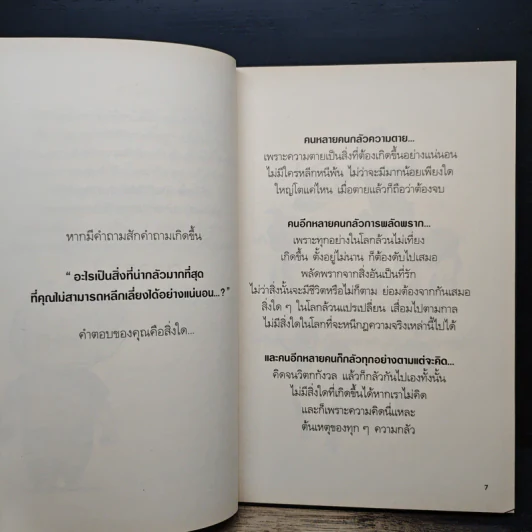 หากมีคำถามสักคำถามเกิดขึ้น
“ อะไรเป็นสิ่งที่น่ากลัวมากที่สุด
ที่คุณไม่สามารถหลีกเลี่ยงได้อย่างแน่นอน...?”
คำตอบของคุณคือสิ่งใด...
คนหลายคนกลัวความตาย...
เพราะความตายเป็นสิ่งที่ต้องเกิดขึ้นอย่างแน่นอน
ไม่มีใครหลีกหนีพ้น ไม่ว่าจะมีมากน้อยเพียงใด
ใหญ่โตแค่ไหน เมื่อตายแล้วก็ถือว่าต้องจบ
คนอีกหลายคนกลัวการพลัดพราก...
เพราะทุกอย่างในโลกล้วนไม่เที่ยง
เกิดขึ้น ตั้งอยู่ไม่นาน ก็ต้องดับไปเสมอ
พลัดพรากจากสิ่งอันเป็นที่รัก
ไม่ว่าสิ่งนั้นจะมีชีวิตหรือไม่ก็ตาม ย่อมต้องจากกันเสมอ
สิ่งใด ๆ ในโลกล้วนแปรเปลี่ยน เสื่อมไปตามกาล
ไม่มีสิ่งใดในโลกที่จะหนีกฎความจริงเหล่านี้ไปได้
และคนอีกหลายคนก็กลัวทุกอย่างตามแต่จะคิด...
คิดจนวิตกกังวล แล้วก็กลัวกันไปเองทั้งนั้น
ไม่มีสิ่งใดที่เกิดขึ้นได้หากเราไม่คิด
และก็เพราะความคิดนี่แหละ
ต้นเหตุของทุก ๆ ความกลัว
7